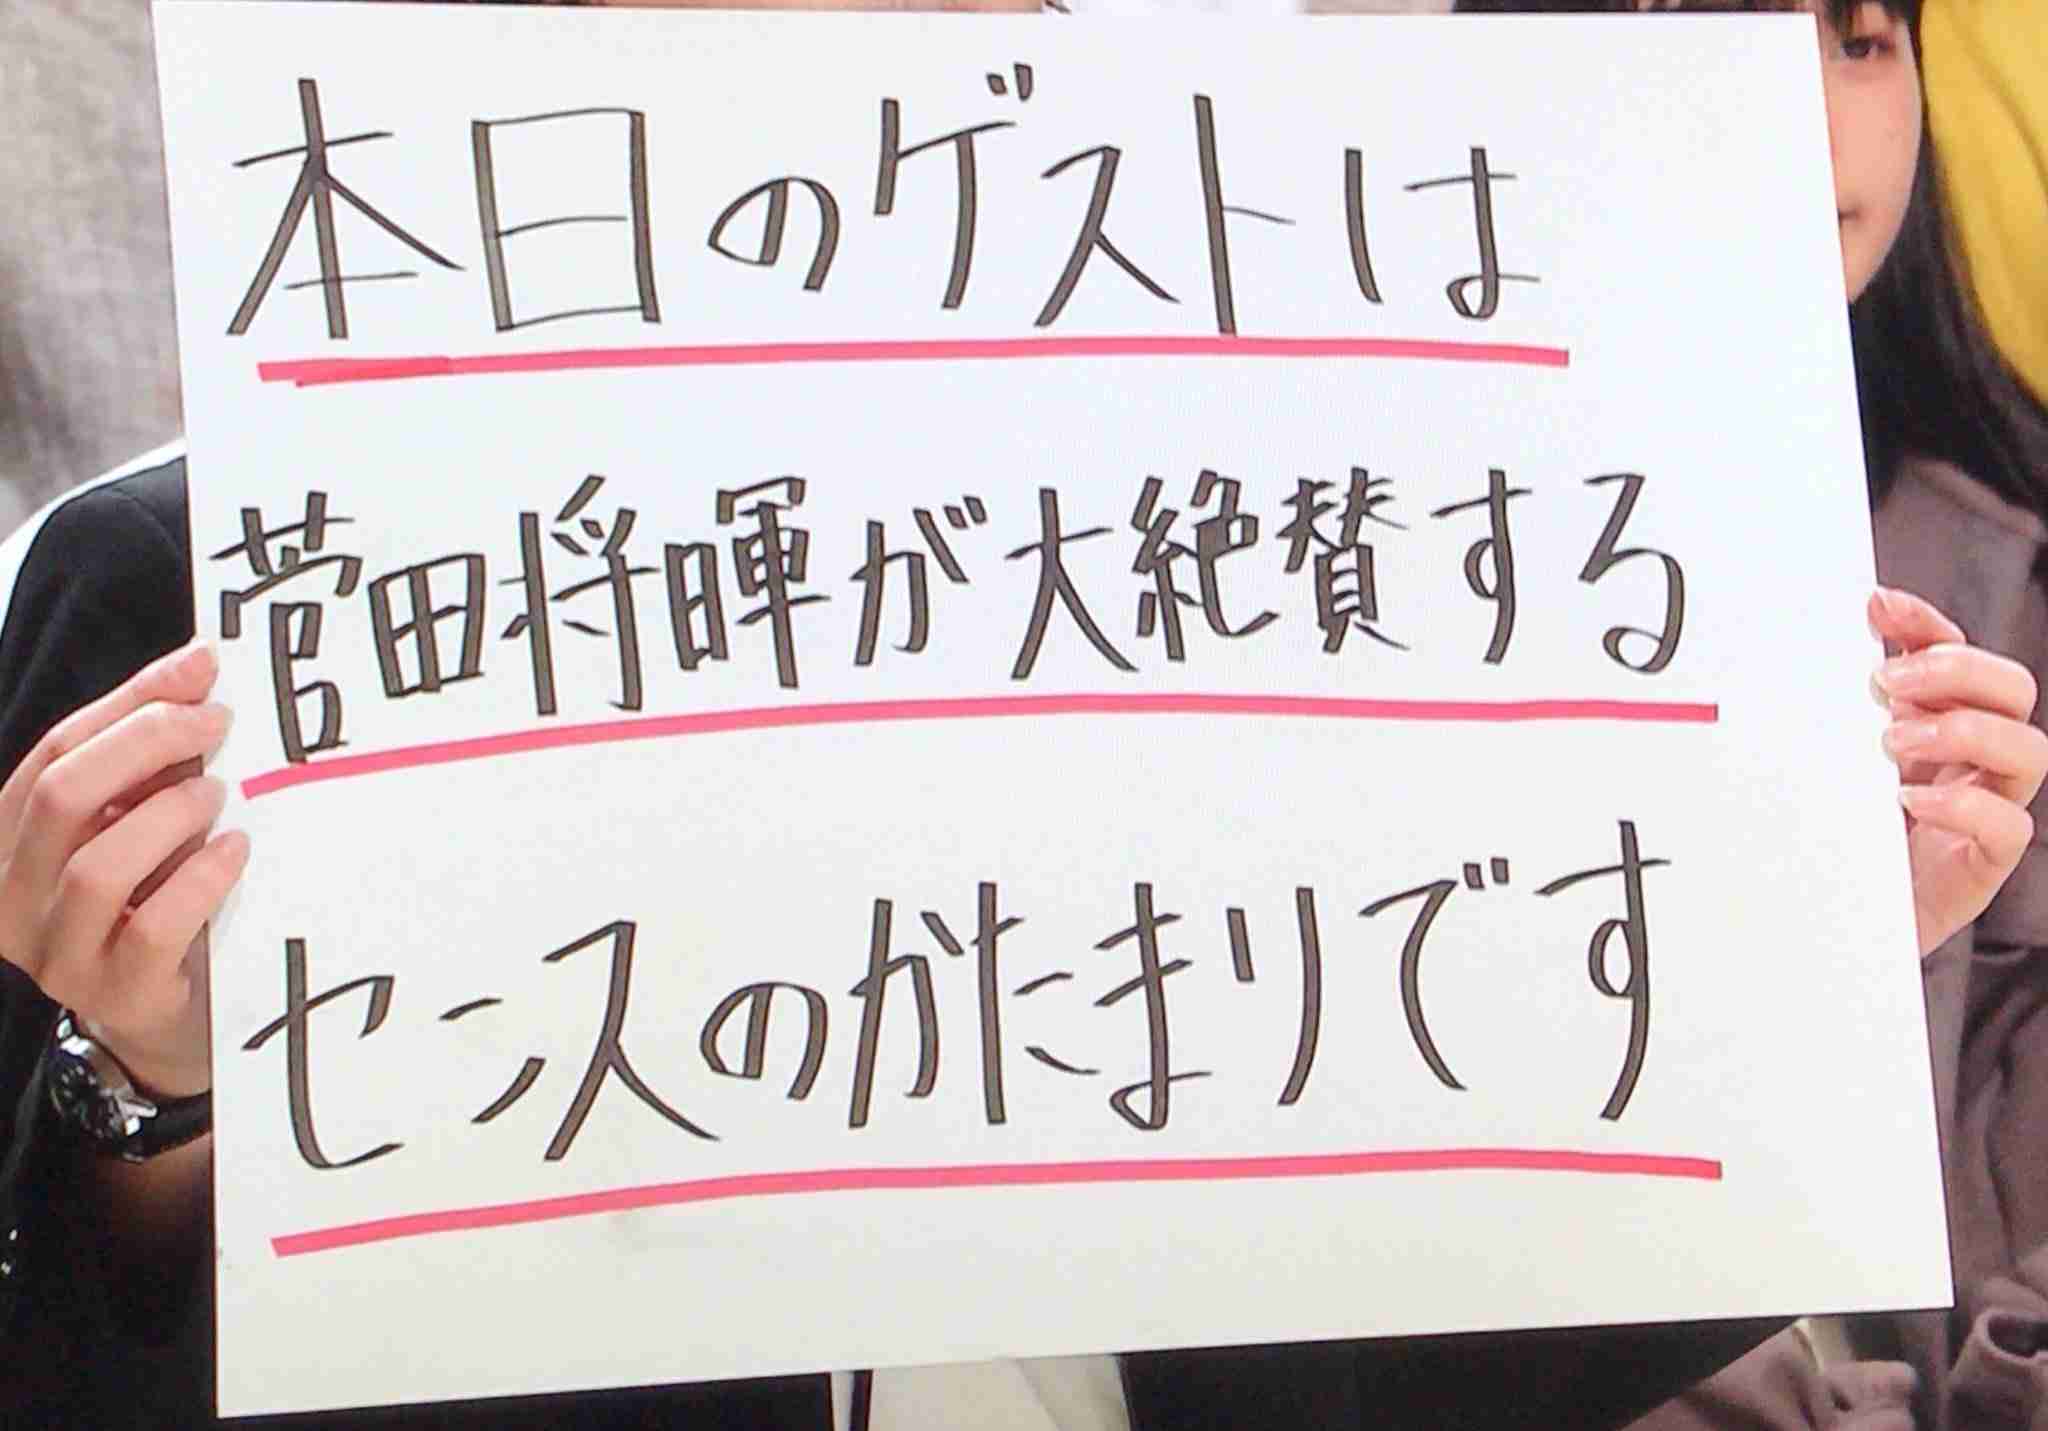 本日のゲストは
菅田将暉が大絶賛する
センスのかたまりです